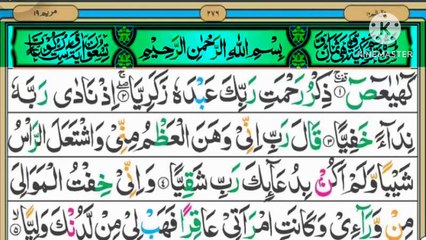 مريم ١٩
٢٧٩
بِسْمِ اللّٰهِ الرَّحْمٰنِ الرَّحِيْمِ
KINEMASTER
كٓهٰيٰعٓصٓ ۚ﴿۱﴾ ذِكْرُ رَحْمَتِ رَبِّكَ عَبْدَهٗ زَكَرِيَّا ۖۚ﴿۲﴾ اِذْ نَادٰى رَبَّهٗ
نِدَآءً خَفِيًّا ﴿۳﴾ قَالَ رَبِّ اِنِّىْ وَهَنَ الْعَظْمُ مِنِّىْ وَاشْتَعَلَ الرَّاْسُ
شَيْبًا وَّلَمْ اَكُنْۢ بِدُعَآئِكَ رَبِّ شَقِيًّا ﴿۴﴾ وَاِنِّىْ خِفْتُ الْمَوَالِىَ
مِنْ وَّرَآءِىْ وَكَانَتِ امْرَاَتِىْ عَاقِرًا فَهَبْ لِىْ مِنْ لَّدُنْكَ وَلِيًّا ۙ﴿۵﴾